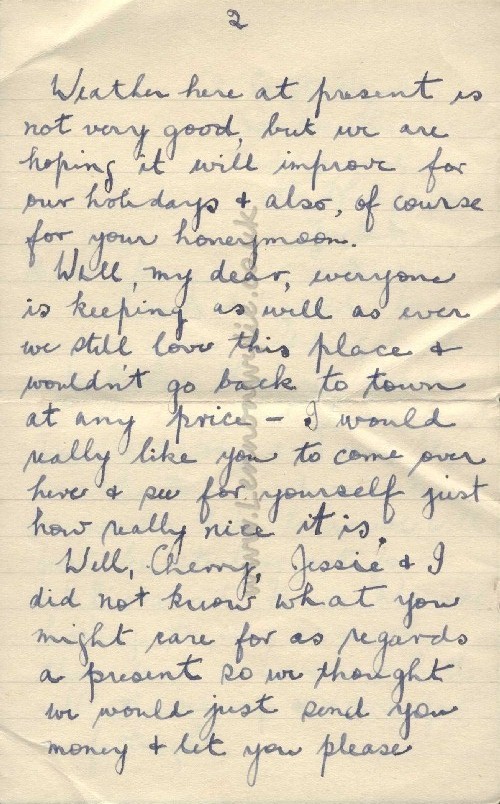 2
Weather here at present is
not very good, but we are
hoping it will improve for
our holidays & also, of course
for your honeymoon.
Well, my dear, everyone
is keeping as well as ever
we still love this place &
wouldn't go back to town
at any price - I would
really like you to come over
here & see for yourself just
how really nice it is.
Well, Cherry, Jessie & I
did not know what you
might care for as regards
a present so we thought
we would just send you
money & let you please